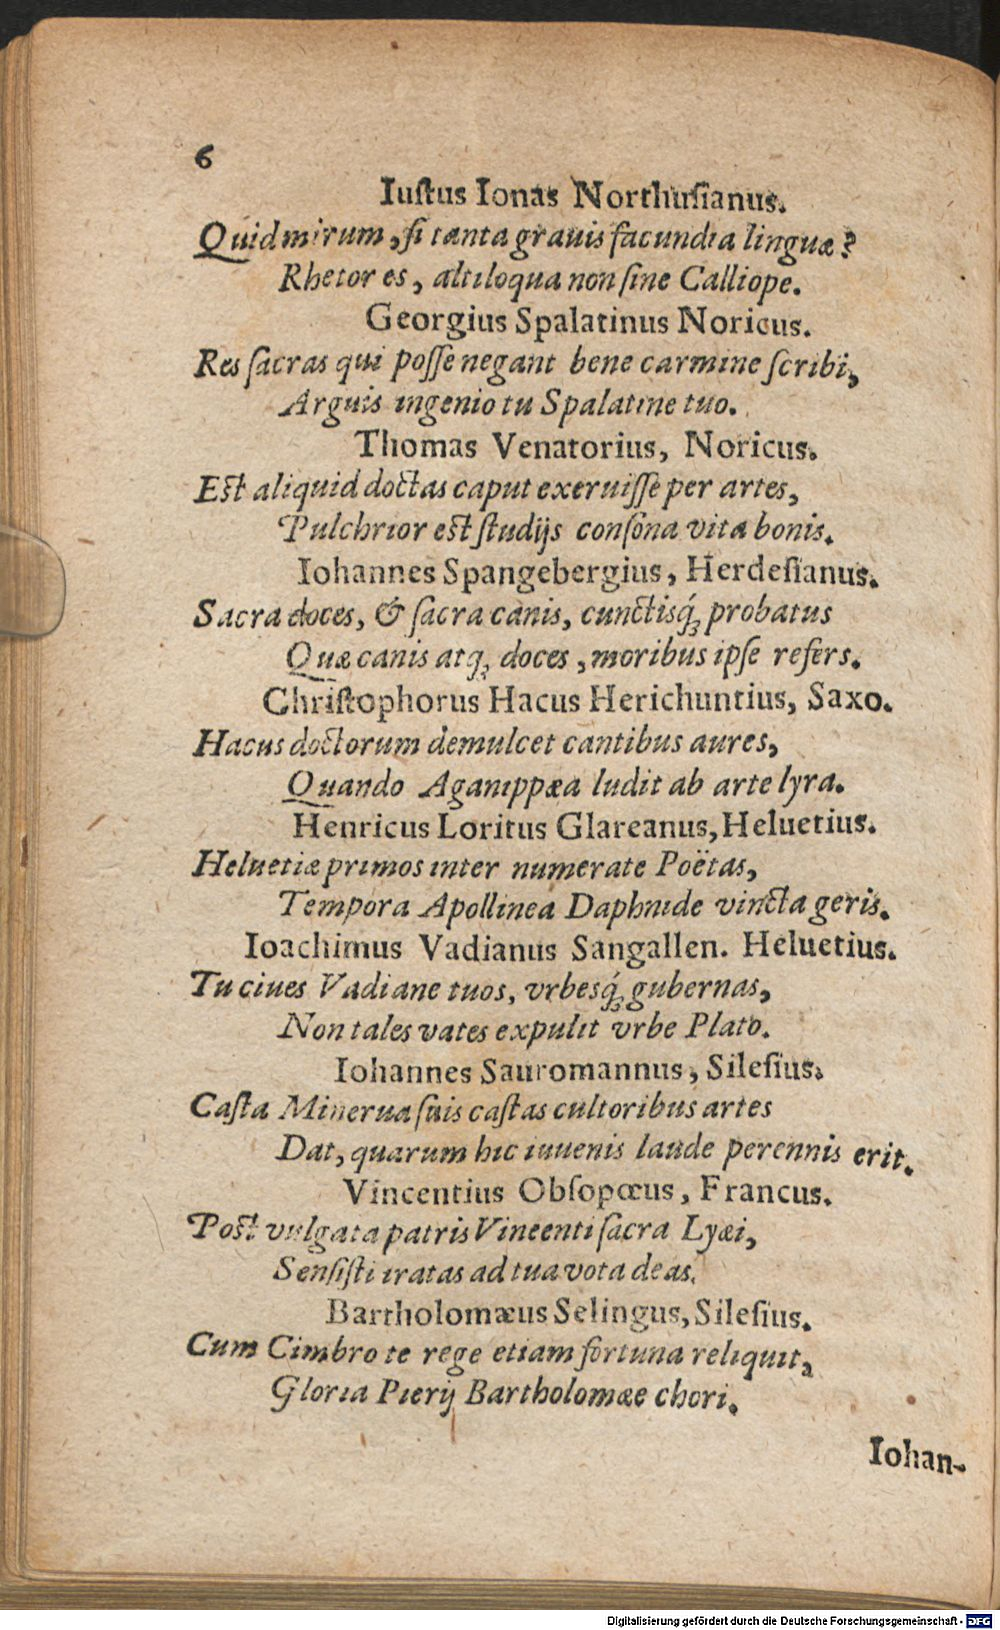 6
Iuſtus Ionas Northuſianus.
Quid mirum, ſi tanta grauis facundia linguæ?
Rhetor es, altiloqua non ſine Calliope.
Georgius Spalatinus Noricus.
Res ſacras qui poſſe negant bene carmine ſcribi,
Arguis ingenio tu Spalatine tuo.
Thomas Venatorius, Noricus.
Est aliquid doctas caput exeruiſſe per artes,
Pulchrior est ſtudijs conſona vita bonis.
Iohannes Spangebergius, Herdeſianus.
Sacra doces, & ſacra canis, cunctisq́ꝫ probatus
Quæ canis atqꝫ doces, moribus ipſe refers.
Chriſtophorus Hacus Herichuntius, Saxo.
Hacus doctorum demulcet cantibus aures,
Quando Aganippæa ludit ab arte lyra.
Henricus Loritus Glareanus, Heluetius.
Heluetiæ primos inter numerate Poëtas,
Tempora Apollinea Daphnide vincta geris.
Ioachimus Vadianus Sangallen. Heluetius.
Tu ciues Vadiane tuos, vrbesq́ꝫ gubernas,
Non tales vates expulit vrbe Plato.
Iohannes Sauromannus, Sileſius.
Caſta Minerua ſuis caſtas cultoribus artes
Dat, quarum hic iuuenis laude perennis erit.
Vincentius Obſopœus, Francus.
Post vulgata patris Vincenti ſacra Lyæi,
Senſiſti iratas ad tua vota deas.
Bartholomæus Selingus, Sileſius.
Cum Cimbro te rege etiam fortuna reliquit,
Gloria Pierij Bartholomæe chori.
Iohan-
Digitalisierung gefördert durch die Deutsche Forschungsgemeinschaft - DFG